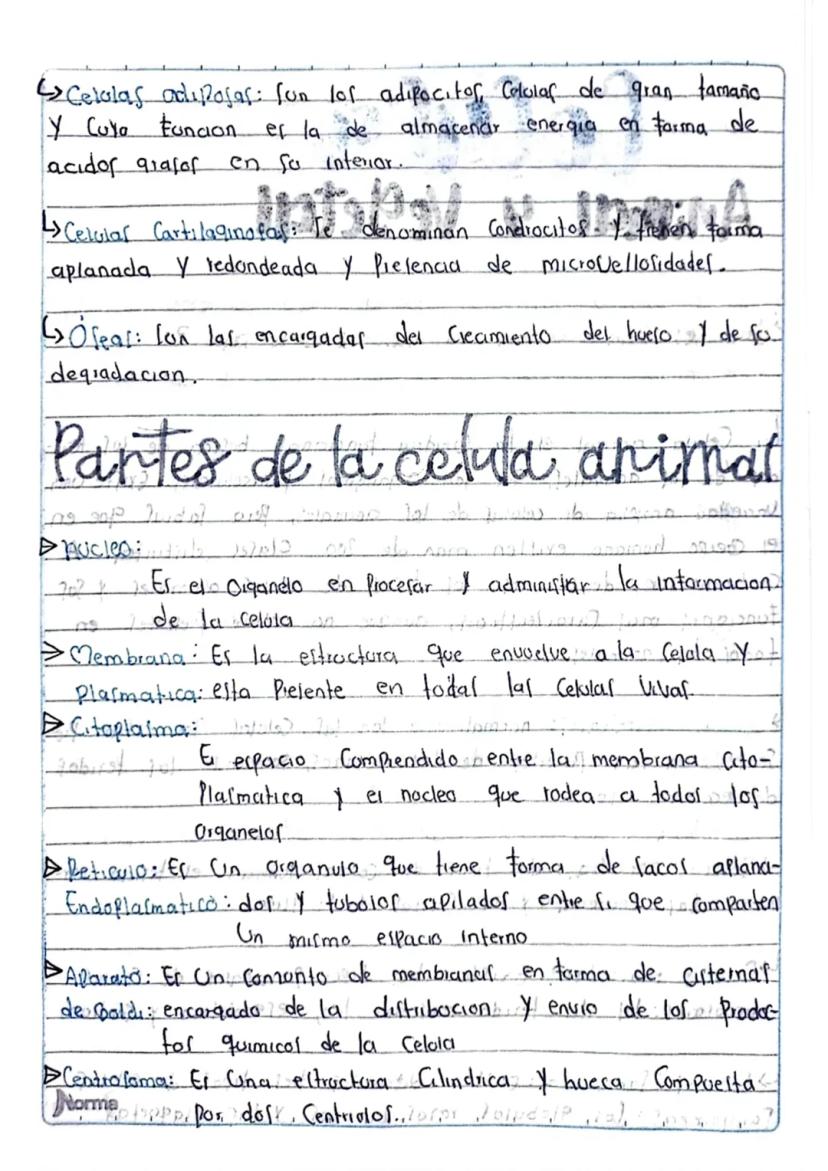 ↳ Celulas adiposas: Son los adipocitos, Celulas de gran tamaño
Y Cuya funcion es la de almacenar energia en forma de
acidos grasos en su interior.
↳ Celulas Cartilaginosas: Se denominan Condrocitos Y tienen forma
aplanada Y redondeada Y Presencia de microvellosidades.
↳ Óseas: Son las encargadas del Crecimiento del hueso Y de su
degradacion.
Partes de la celula animal
Nucleo:
Es el Organelo en Procesar Y administar la informacion
de la Celula
Membrana: Es la estructura que envuelve a la Celula Y
Plasmatica: esta Presente en todas las Celulas Vivas.
Citoplasma:
E espacio Comprendido entre la membrana Cito-
Plasmatica y el nucleo que rodea a todos los
Organelos
Reticulo: Es Un organulo que tiene forma de sacos aplana-
Endoplasmatico: dos Y tubulos apilados entre si que comparten
Un mismo espacio interno
Aparato: Es Un Conunto de membranas en forma de cisternas
de Goldi: encargado de la distribucion Y envio de los Produc-
tos quimicos de la Celula
Centrosoma: Es Una estructura Cilindrica Y hueca Compuesta
Por dos Centriolos.
Norma